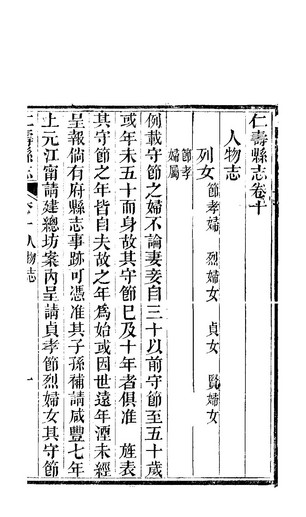 仁壽縣志卷十
人物志
列女 節孝婦 烈婦女 貞女 賢婦女
節孝
婦屬
例載守節之婦不論妻妾自三十以前守節至五十歲
或年未五十而身故其守節已及十年者俱准 旌表
其守節之年皆自夫故之年為始或因世遠年湮未經
呈報倘有府縣志事跡可憑准其子孫補請咸豐七年
上元江甯請建總坊案內呈請貞孝節烈婦女其守節
仁壽縣志
人物志
一